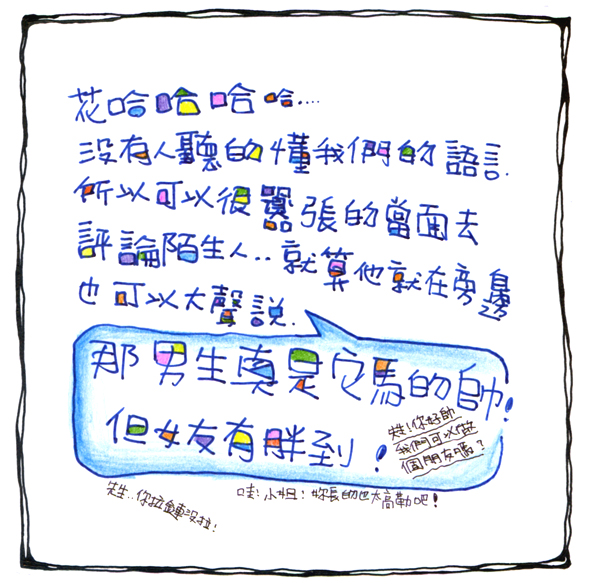 花哈哈哈哈....
沒有人聽的懂我們的語言.
所以可以很囂張的當面去
評論陌生人..就算他就在旁邊
也可以大聲說.
那男生真是它馬的帥!
但女友有胖到!
先生!你好帥
我們可以做
個朋友嗎?
哇!小姐!妳長的也太高勒吧!
先生..你拉鏈沒拉!